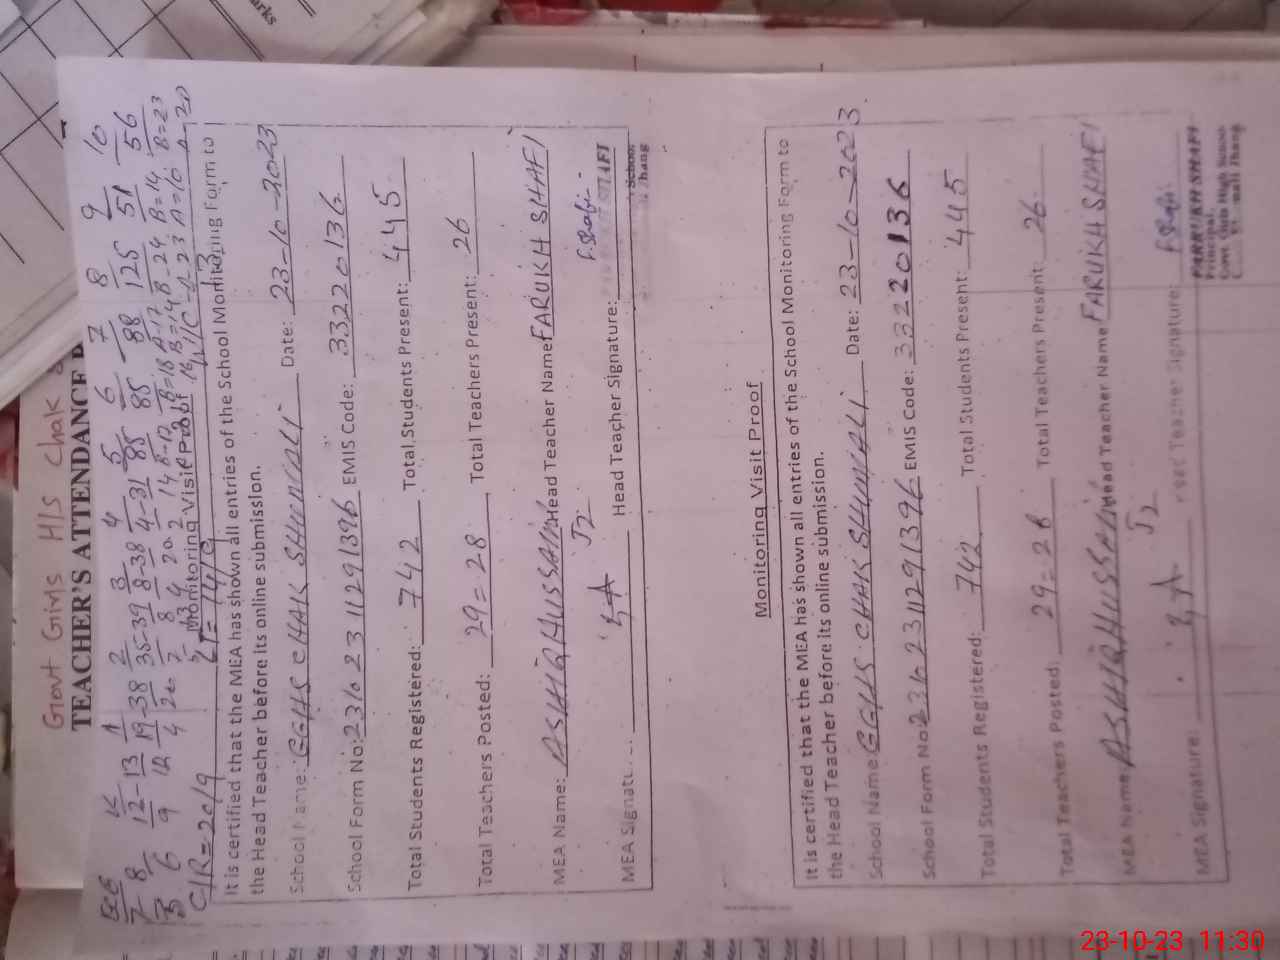 Govt Girls H/S Chak
TEACHER'S ATTENDANCE
ECE K 1 2 3 4 5 6 7 8 9 10
7-8 12-13 19-38 35-39 8-38 4-31 85 85 88 125 51 56
C/R=20/9
Monitoring Visit Proof
It is certified that the MEA has shown all entries of the School Monitoring Form to
the Head Teacher before its online submission.
School Name: GGHS CHAK SHUMALI Date: 23-10-2023
School Form No: 23102311291396 EMIS Code: 33220136
Total Students Registered: 742 Total Students Present: 445
Total Teachers Posted: 29=28 Total Teachers Present: 26
MEA Name: ASHIQ HUSSAIN Head Teacher Name FARUKH SHAFI
MEA Signat... Head Teacher Signature: F.Shafi
School
Jhang
Monitoring Visit Proof
It is certified that the MEA has shown all entries of the School Monitoring Form to
the Head Teacher before its online submission.
School Name: GGHS CHAK SHUMALI Date: 23-10-2023
School Form No: 23102311291396 EMIS Code: 33220136
Total Students Registered: 742 Total Students Present: 445
Total Teachers Posted: 29=28 Total Teachers Present: 26
MEA Name ASHIQ HUSSAIN Head Teacher Name FARUKH SHAFI
MEA Signature: Head Teacher Signature: F.Shafi
FARRUKH SHAFI
Principal
Govt. Girls High School
Jhang
23-10-23 11:30